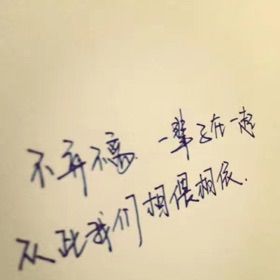 不弃不离 一辈子在一起
从此我们相偎相依.